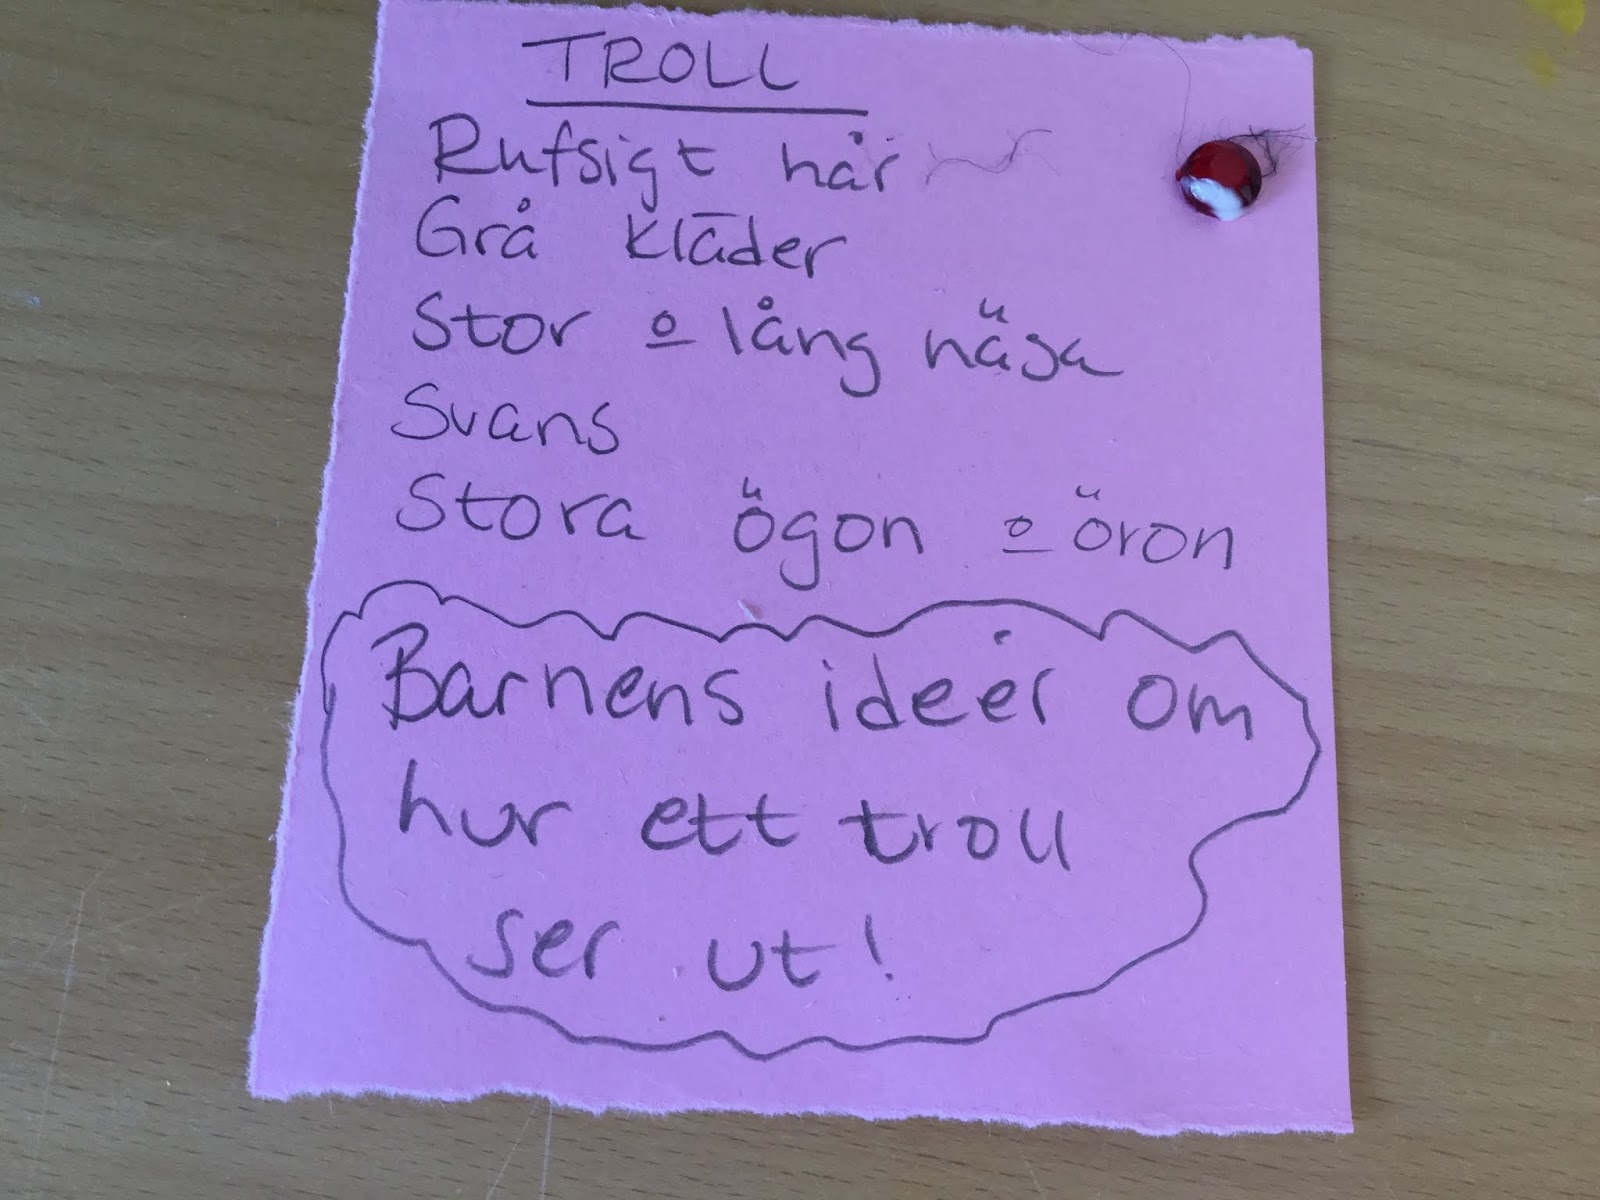 TROLL
Rufsigt hår
Grå kläder
Stor o lång näsa
Svans
Stora ögon o öron
Barnens ideér om
hur ett troll
ser ut!